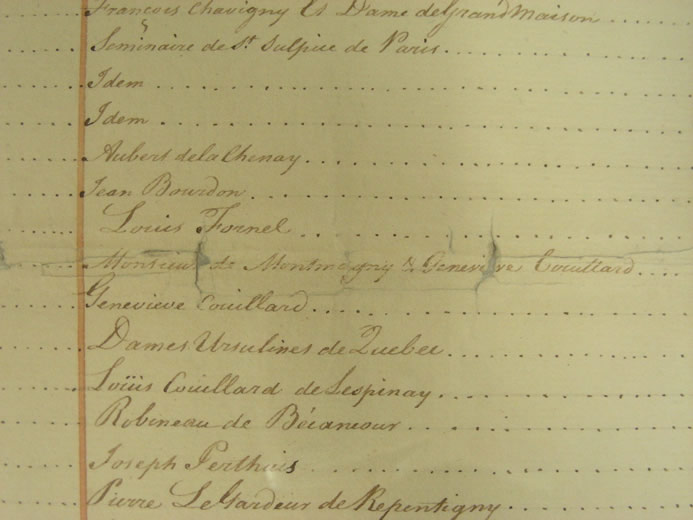 François Chavigny & Dame de Grand Maison
Seminaire de St. Sulpice de Paris
Idem
Idem
Aubert de la Chenay
Jean Bourdon
Louis Fornel
Monsieur de Montmagny & Genevieve Couillard
Genevieve Couillard
Dames Ursulines de Quebec
Loüis Couillard de Lespinay
Robineau de Bécancour
Joseph Perthuis
Pierre Le Gardeur de Repentigny